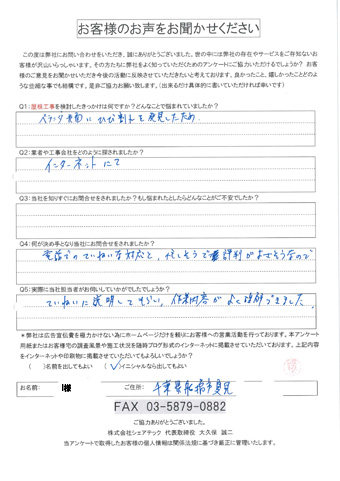 お客様のお声をお聞かせください
この度は弊社にお問い合わせをいただき、誠にありがとうございました。世の中には弊社の存在やサービスをご存知ないお
客様が沢山いらっしゃいます。その方たちに弊社をよく知っていただくためのアンケートにご協力いただけるでしょうか？ お客
様のご意見をお聞かせいただき今後の活動に反映させていただきたいと考えております。良かったこと、嬉しかったことどのよ
うな些細な事でも結構です。是非ご協力お願い致します。（出来るだけ具体的に書いていただければ幸いです）
Q1：屋根工事を検討したきっかけは何ですか？どんなことで悩まれていましたか？
ベランダ表面にひび割れを発見したため.
Q2：業者や工事会社をどのように探されましたか？
インターネットにて
Q3：当社を知りすぐにお問合せをされましたか？もし悩まれたとしたらどんなことがご不安でしたか？
Q4：何が決め手となり当社にお問合せをされましたか？
電話でのていねいな対応と、忙しそうで評判がよさそうなので
Q5：実際に当社担当者がお伺いしていかがでしたでしょうか？
ていねいに説明してもらい、作業内容がよく理解できました
＊弊社は広告宣伝費を極力かけない為にホームページだけを頼りにお客様への営業活動を行っております。本アンケート
用紙またはお客様宅の調査風景や施工状況を随時ブログ形式のインターネットに掲載させていただいております。上記内容
をインターネットや印刷物に掲載させていただいてもよろしいでしょうか？
（　）名前を出してもよい （✓）イニシャルなら出してもよい
お名前： I様 ご住所： 千葉県船橋市夏見
FAX 03-5879-0882
ご協力ありがとうございました。
株式会社シェアテック 代表取締役 大久保 誠二
当アンケートで取得したお客様の個人情報は関係法規に基づき厳正に管理いたします。